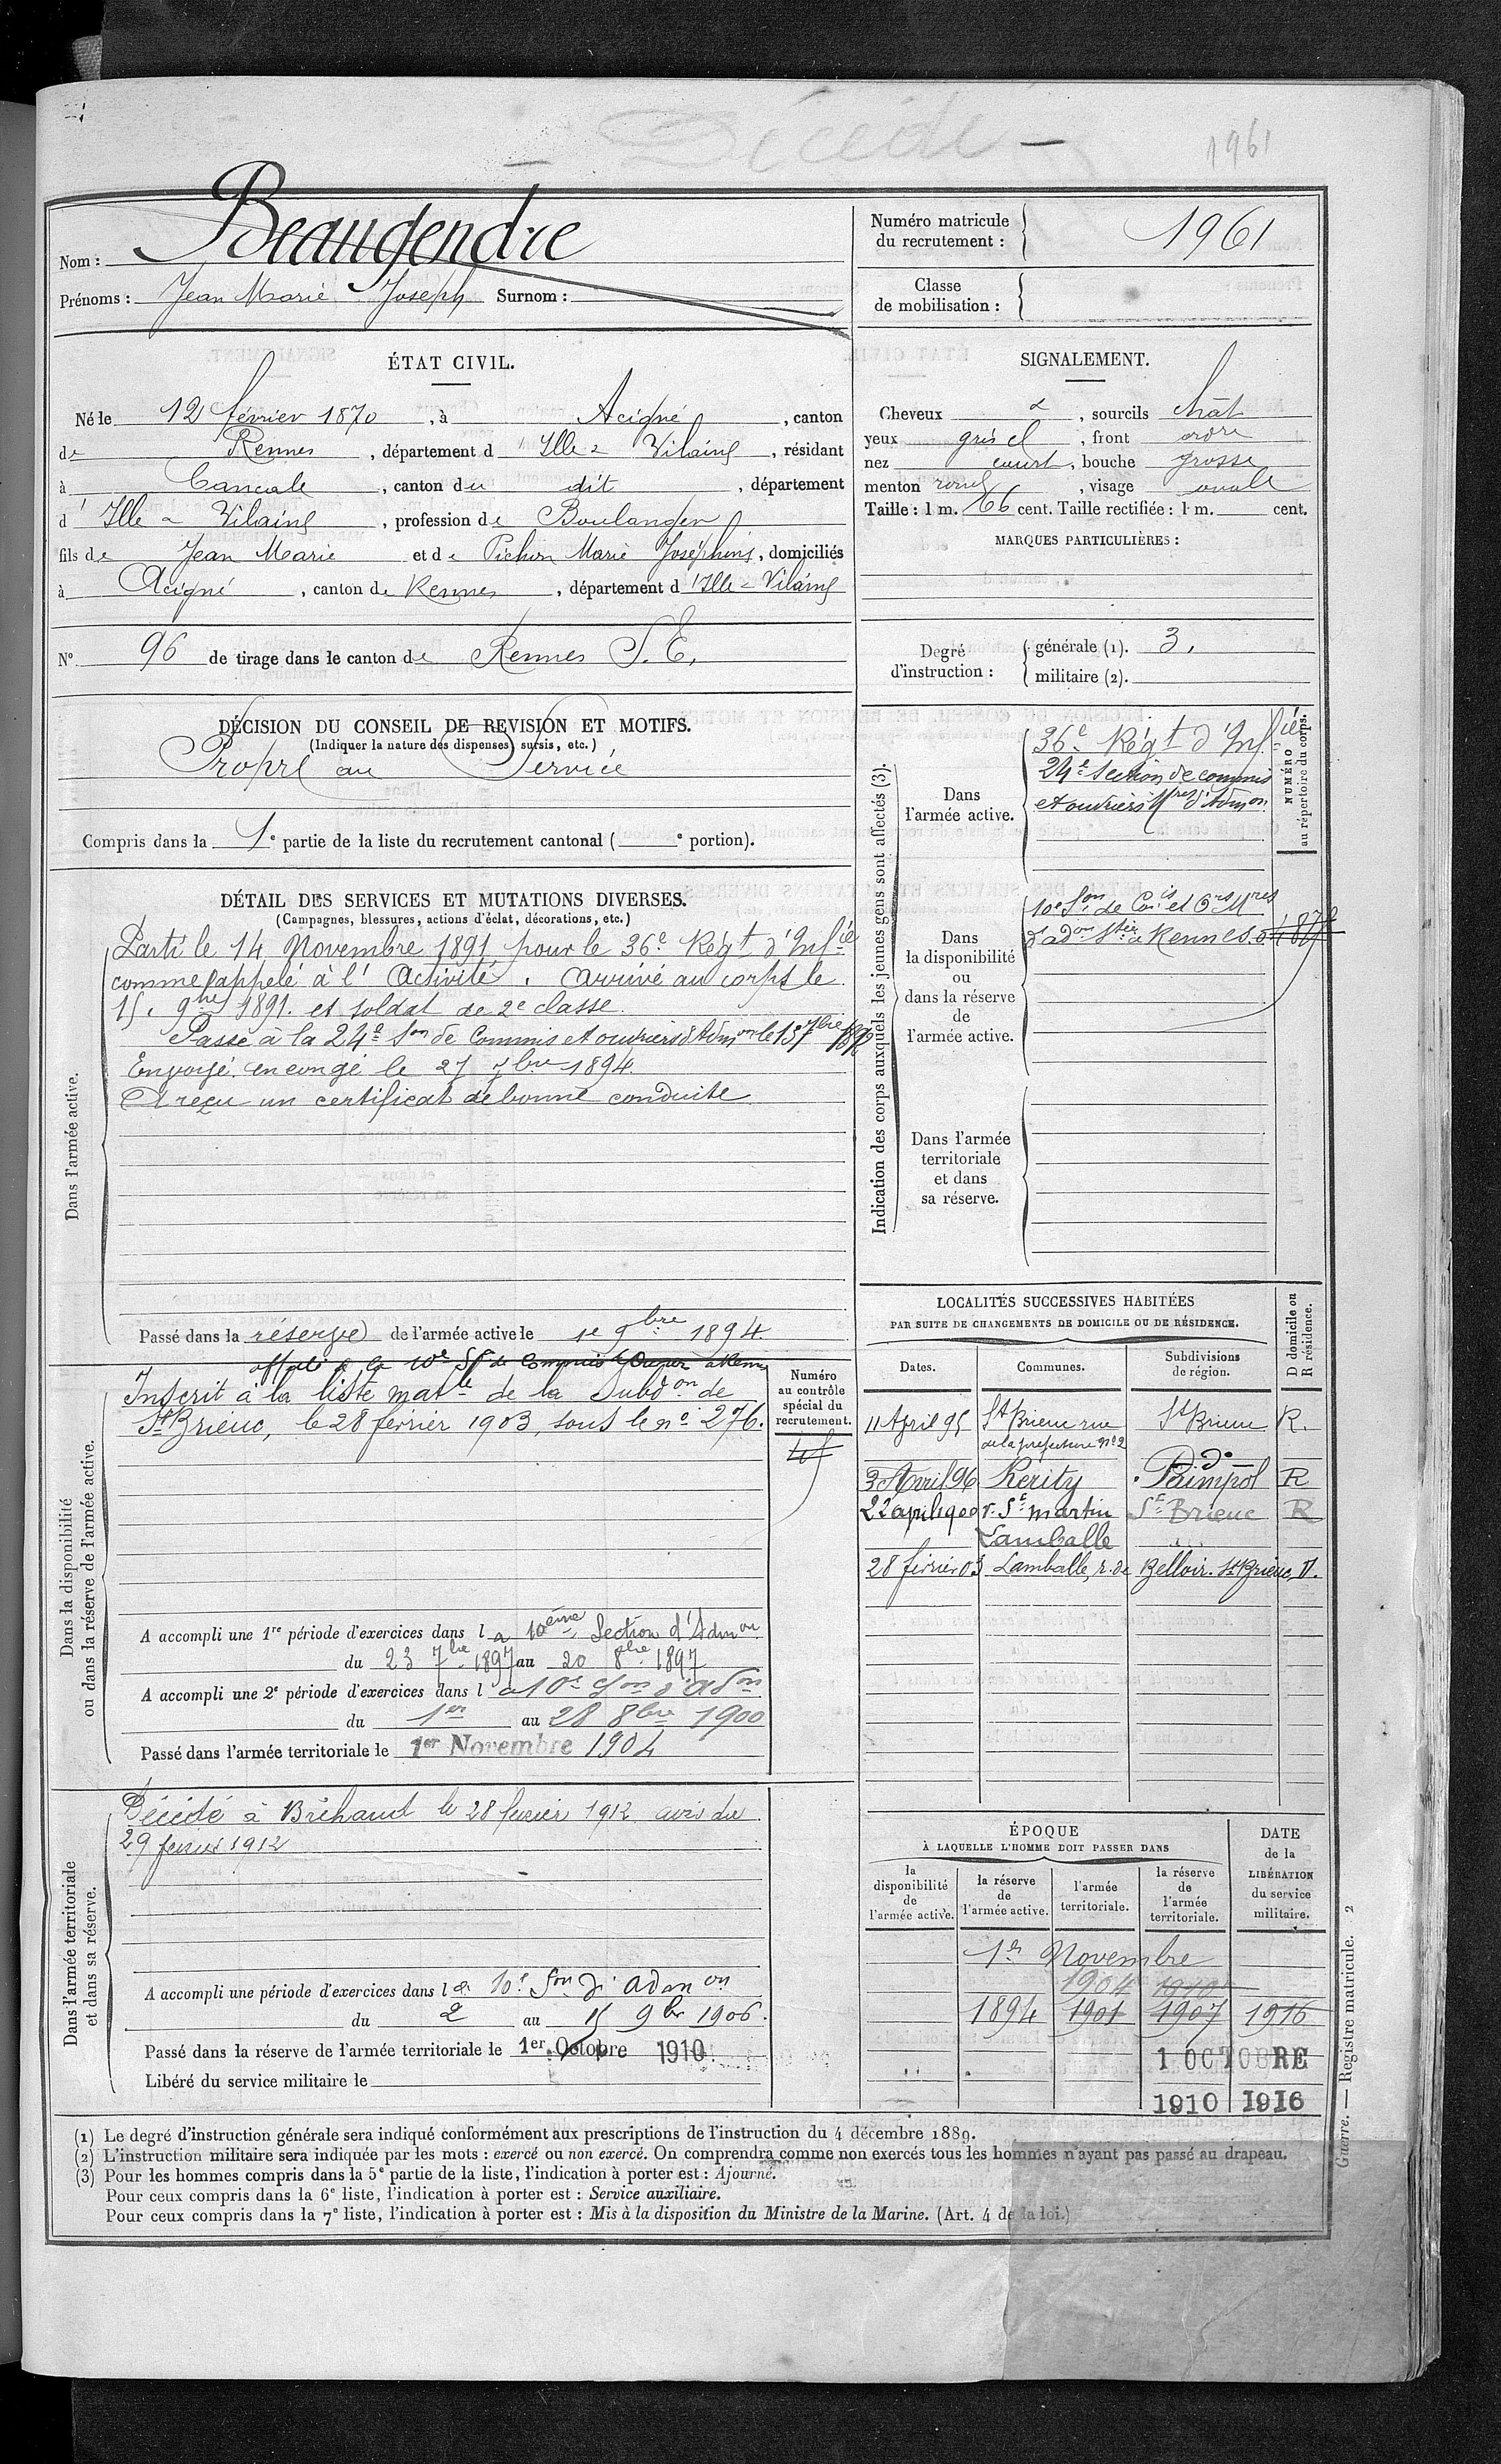 Décédé
1961
Nom : Beaugendre
Prénoms : Jean Marie Joseph Surnom :
Numéro matricule du recrutement : 1961
Classe de mobilisation :
ÉTAT CIVIL.
Né le 12 février 1870, à Acigné, canton
de Rennes, département d Ille & Vilaine, résidant
à Cancale, canton du dit, département
d'Ille & Vilaine, profession de Boulanger
fils de Jean Marie et de Pichon Marie Joséphine, domiciliés
à Acigné, canton de Rennes, département d'Ille & Vilaine
N° 96 de tirage dans le canton de Rennes S. E.
SIGNALEMENT.
Cheveux &, sourcils chât
yeux gris cl, front ordre
nez court, bouche grosse
menton rond, visage ovale
Taille : 1 m. 66 cent. Taille rectifiée : 1 m. cent.
MARQUES PARTICULIÈRES :
Degré d'instruction :
générale (1). 3.
militaire (2).
DÉCISION DU CONSEIL DE REVISION ET MOTIFS.
(Indiquer la nature des dispenses, sursis, etc.)
Propre au Service
Compris dans la 1e partie de la liste du recrutement cantonal ( e portion).
DÉTAIL DES SERVICES ET MUTATIONS DIVERSES.
(Campagnes, blessures, actions d'éclat, décorations, etc.)
Dans l'armée active.
Parti le 14 Novembre 1891 pour le 36e Régt d'Infie
comme appelé à l'Activité. Arrivé au corps le
15 9bre 1891. et soldat de 2e classe.
Passé à la 24e Son de Commis et ouvriers d'Admon le 13 7bre
Envoyé en congé le 27 7bre 1894
A reçu un certificat de bonne conduite
Passé dans la réserve de l'armée active le 1e 9bre 1894.
Indication des corps auxquels les jeunes gens sont affectés (3).
NUMÉRO au répertoire du corps.
Dans l'armée active.
36e Régt d'Infie
24e Section de commis
et ouvriers Mres d'Admon
Dans la disponibilité ou dans la réserve de l'armée active.
10e Son de Cis et Ors Mres
d'adon Stée à Rennes
Dans l'armée territoriale et dans sa réserve.
Dans la disponibilité ou dans la réserve de l'armée active.
Inscrit à la liste matle de la Subdon de
St Brieuc, le 28 février 1903, sous le n° 276.
Numéro au contrôle spécial du recrutement.
A accompli une 1re période d'exercices dans la 10ème Section d'Admon
du 23 7bre 1897 au 20 8bre 1897
A accompli une 2e période d'exercices dans la 10e Son d'Adon
du 1er au 28 8bre 1900
Passé dans l'armée territoriale le 1er Novembre 1904
LOCALITÉS SUCCESSIVES HABITÉES
PAR SUITE DE CHANGEMENTS DE DOMICILE OU DE RÉSIDENCE.
D domicile ou R résidence.
Dates. Communes. Subdivisions de région.
11 April 95 St Brieuc rue St Brieuc R.
de la préfecture n° 2
3 Avril 96 Kerity Paimpol d° R
22 april 1900 r. St martin St Brieuc R
Lamballe
28 février 03 Lamballe, r. de Belloir. St Brieuc, D.
Dans l'armée territoriale et dans sa réserve.
Décédé à Bréhand le 28 février 1912 avis du
29 février 1912
A accompli une période d'exercices dans la 10e Son d'admon
du 2 au 15 9br 1906.
Passé dans la réserve de l'armée territoriale le 1er Octobre 1910.
Libéré du service militaire le
ÉPOQUE
À LAQUELLE L'HOMME DOIT PASSER DANS
DATE de la LIBÉRATION du service militaire.
la disponibilité de l'armée active.
la réserve de l'armée active.
l'armée territoriale.
la réserve de l'armée territoriale.
1er Novembre
1904 1910
1894 1901 1907 1916
1 OCTOBRE
1910 1916
(1) Le degré d'instruction générale sera indiqué conformément aux prescriptions de l'instruction du 4 décembre 1889.
(2) L'instruction militaire sera indiquée par les mots : exercé ou non exercé. On comprendra comme non exercés tous les hommes n'ayant pas passé au drapeau.
(3) Pour les hommes compris dans la 5e partie de la liste, l'indication à porter est : Ajourné.
Pour ceux compris dans la 6e liste, l'indication à porter est : Service auxiliaire.
Pour ceux compris dans la 7e liste, l'indication à porter est : Mis à la disposition du Ministre de la Marine. (Art. 4 de la loi.)
Guerre. — Registre matricule. 2